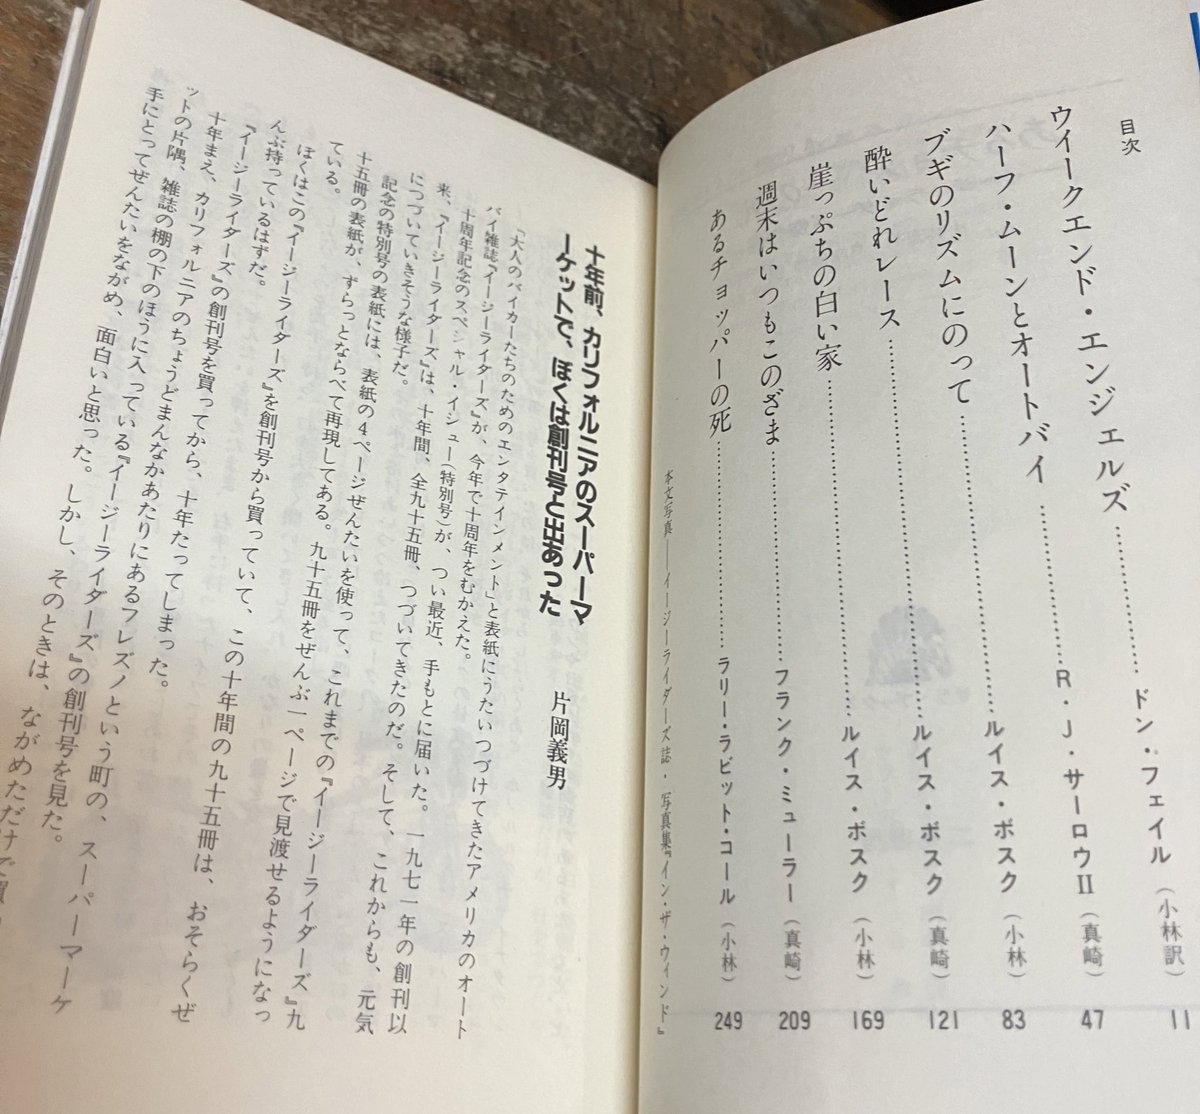 目次
ウイークエンド・エンジェルズ……………ドン・フェイル（小林訳） 11
ハーフ・ムーンとオートバイ……………R・J・サーロウII（真崎） 47
ブギのリズムにのって……………ルイス・ボスク（小林） 83
酔いどれレース……………ルイス・ボスク（真崎） 121
崖っぷちの白い家……………ルイス・ボスク（小林） 169
週末はいつもこのざま……………フランク・ミューラー（真崎） 209
あるチョッパーの死……………ラリー・ラビット・コール（小林） 249
本文写真――イージーライダーズ誌・写真集『イン・ザ・ウィンド』
十年前、カリフォルニアのスーパーマ
ーケットで、ぼくは創刊号と出あった
片岡義男
「大人のバイカーたちのためのエンタテインメント」と表紙にうたいつづけてきたアメリカのオート
バイ雑誌『イージーライダーズ』が、今年で十周年をむかえた。
十周年記念のスペシャル・イシュー（特別号）が、つい最近、手もとに届いた。一九七一年の創刊以
来、『イージーライダーズ』は、十年間、全九十五冊、つづいてきたのだ。そして、これからも、元気
につづいていきそうな様子だ。
記念の特別号の表紙には、表紙の4ページぜんたいを使って、これまでの『イージーライダーズ』九
十五冊の表紙が、ずらっとならべて再現してある。九十五冊をぜんぶ一ページで見渡せるようになっ
ている。
ぼくはこの『イージーライダーズ』を創刊号から買っていて、この十年間の九十五冊は、おそらくぜ
んぶ持っているはずだ。
『イージーライダーズ』の創刊号を買ってから、十年たってしまった。
十年まえ、カリフォルニアのちょうどまんなかあたりにあるフレズノという町の、スーパーマーケ
ットの片隅、雑誌の棚の下のほうに入っている『イージーライダーズ』の創刊号を見た。
手にとってぜんたいをながめ、面白いと思った。しかし、そのときは、ながめただけで買